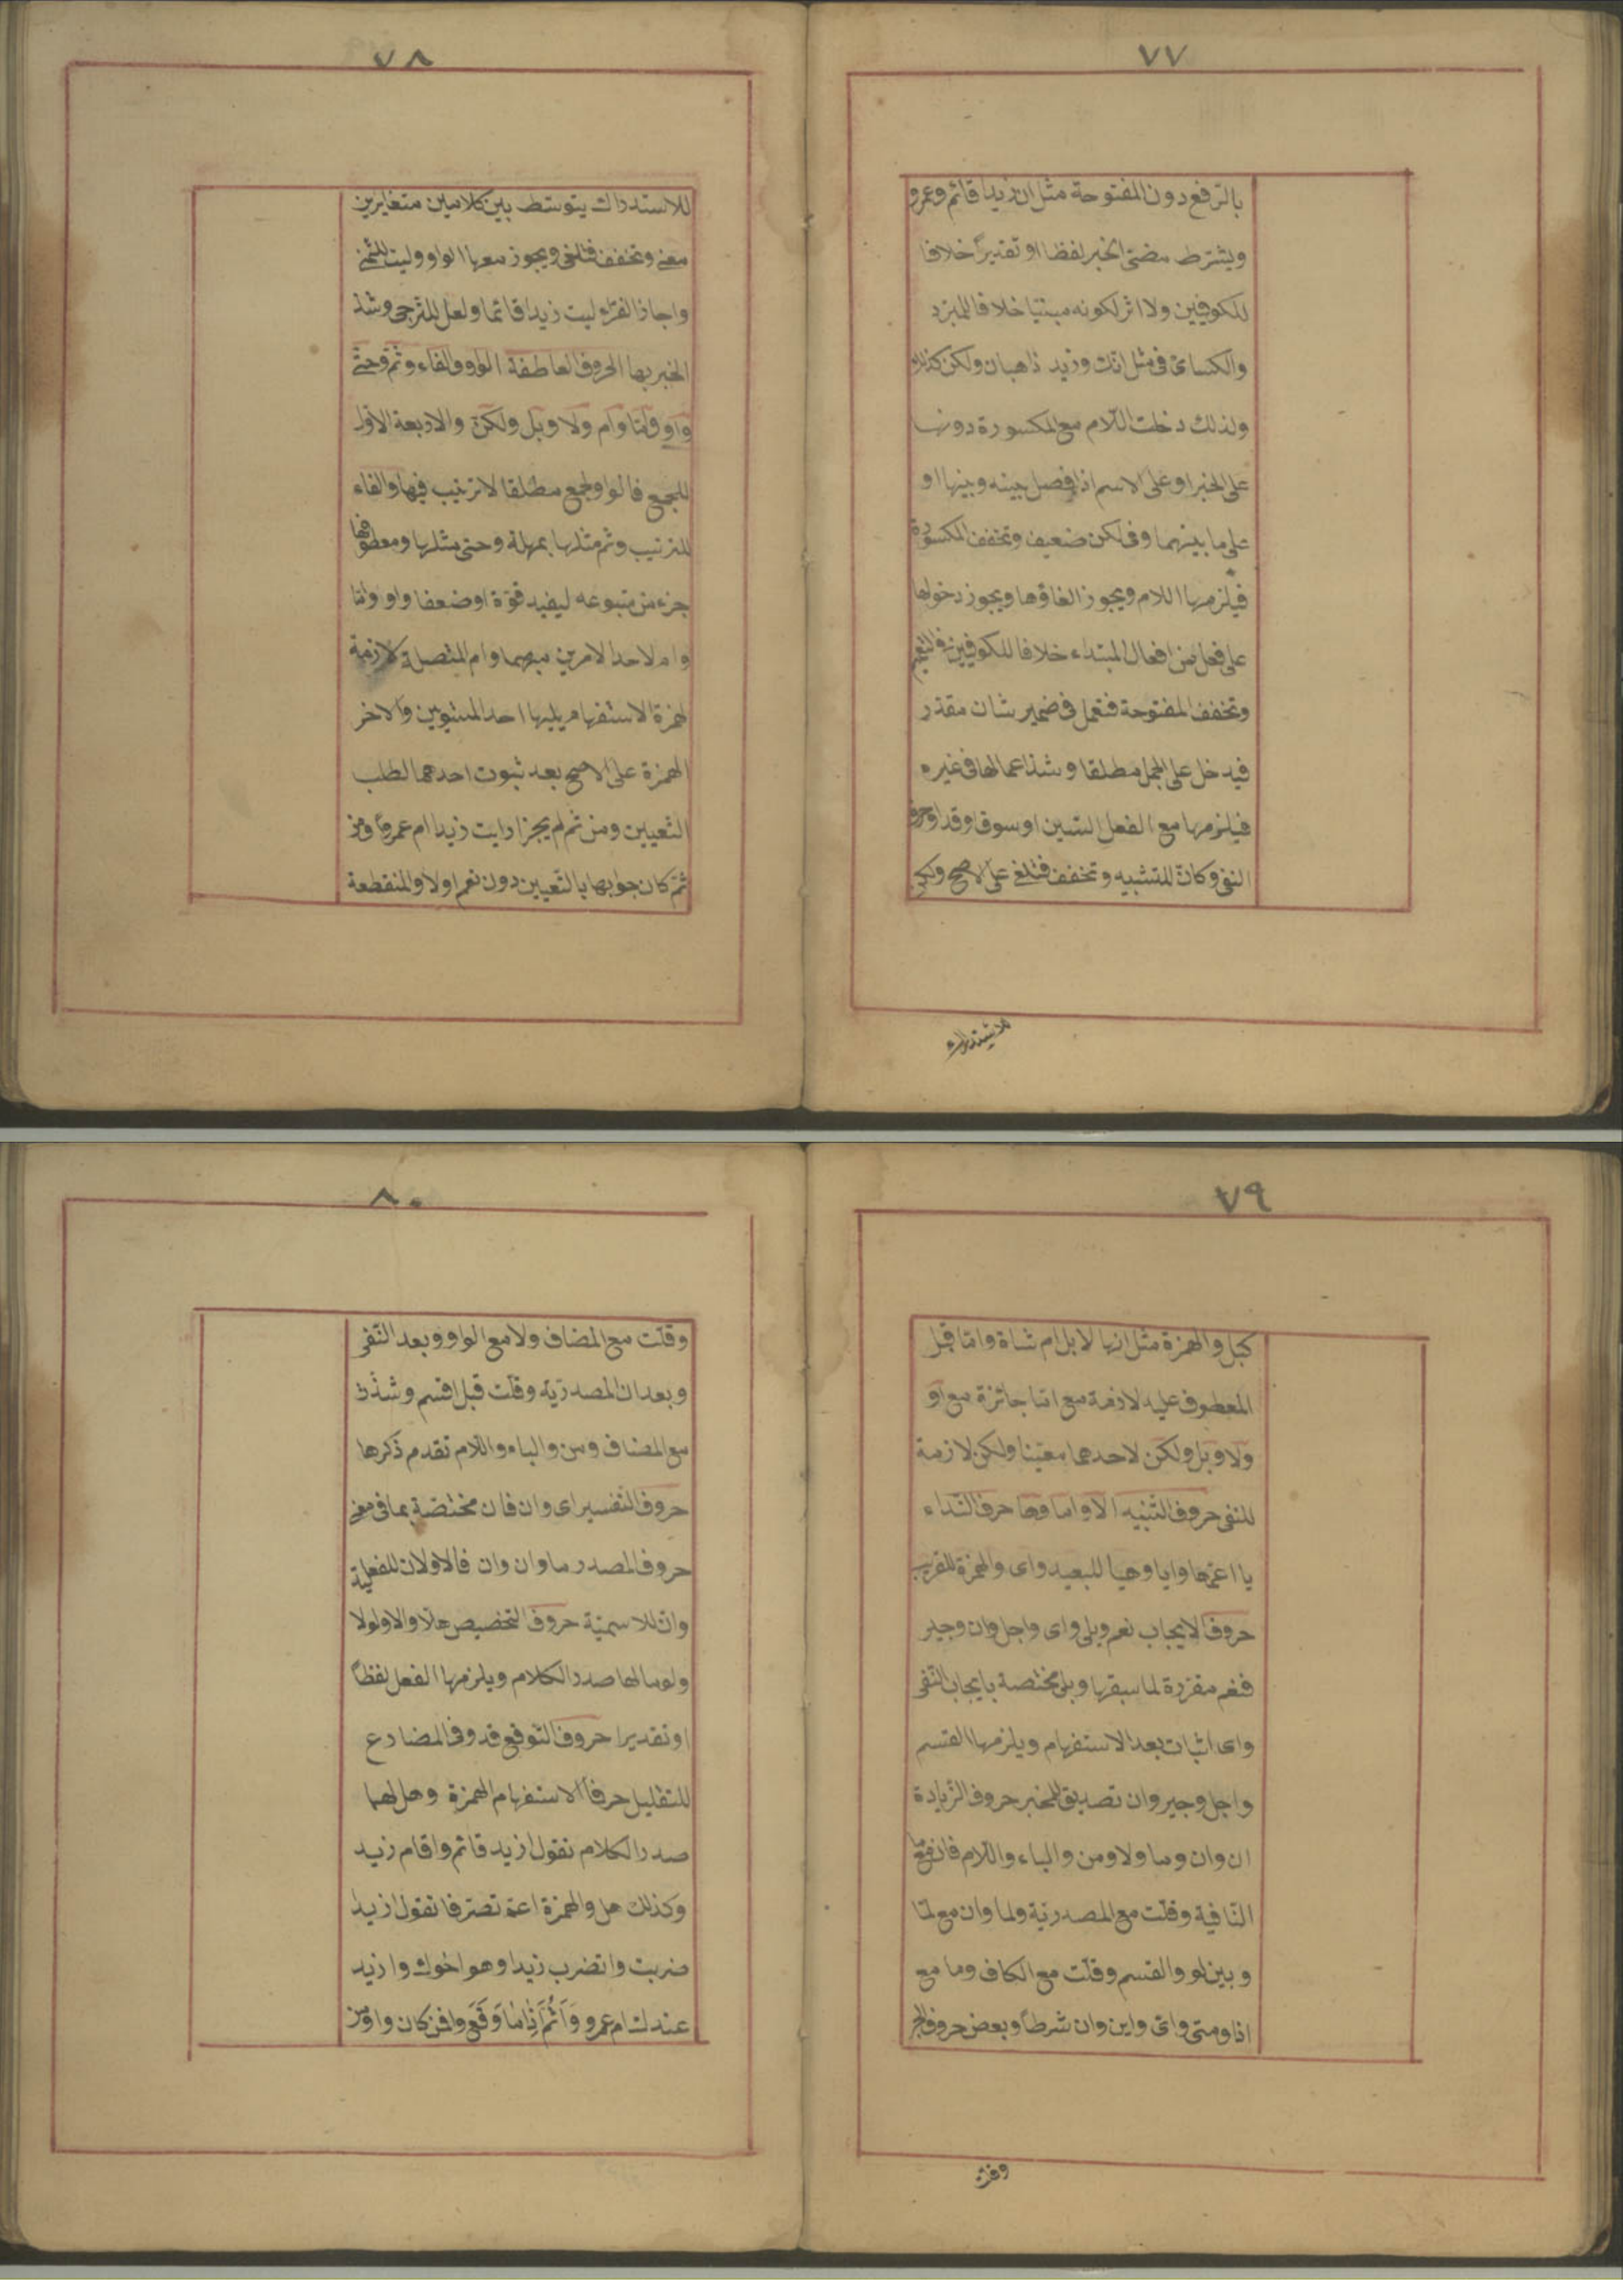 ٧٧
بالرّفع دون المفتوحة مثل ان زيدا قائم وعمرو
ويشترط مضىّ الخبر لفظا او تقديراً خلافا
للكوفيين ولا اثر لكونه مبنيّا خلافا للمبرّد
والكسائىّ فى مثل انّك وزيد ذاهبان ولكن كذلك
ولذلك دخلت اللّام مع المكسورة دونها
على الخبر او على الاسم اذا فصل بينه وبينها او
على ما بينهما وفى لكن ضعيف وتخفف المكسورة
فيلزمها اللام ويجوز الغاؤها ويجوز دخولها
على فعل من افعال المبتداء خلافا للكوفيين فى التعميم
وتخفف المفتوحة فتعمل فى ضمير شان مقدّر
فيدخل على الجمل مطلقا وشذ اعمالها فى غيره
فيلزمها مع الفعل السّين او سوف او قد او حرف
النفى وكانّ للتشبيه وتخفف فتلغى على الاصح ولكن
للاستدراك
٧٨
للاستدراك يتوسّط بين كلامين متغايرين
معنى وتخفف فتلغى ويجوز معها الواو وليت للتمنى
واجاز الفرّاء ليت زيدا قائما ولعل للترجى وشذ
الجر بها الحروف العاطفة الواو والفاء وثمّ وحتّى
واو وامّا وام ولا وبل ولكنْ والاربعة الاوّل
للجمع فالواو لجمع مطلقا لا ترتيب فيها والفاء
للترتيب وثم مثلها بمهلة وحتى مثلها ومعطوفها
جزء من متبوعه ليفيد قوّة او ضعفا واو وامّا
وام لاحد الامرين مبهما وام المتصلة لازمة
لهمزة الاستفهام يليها احد المستويين والاخر
الهمزة على الاصح بعد ثبوت احدهما لطلب
التّعيين ومن ثم لم يجز ارايت زيدا ام عمرواً ومن
ثمّ كان جوابها بالتّعيين دون نعم اولا والمنقطعة
٧٩
كبل والهمزة مثل انها لابل ام شاة وامّا قبل
المعطوف عليه لازمة مع امّا جائزة مع او
ولا وبل ولكن لاحدهما معيّنا ولكن لازمة
للنفى حروف التّنبيه الا واما وها حرف النّداء
يا اعمّها وايا وهيا للبعيد واى والهمزة للقريب
حروف الايجاب نعم وبلى واى واجل وان وجير
فنعم مقرّرة لما سبقها وبلى مختصة بايجاب النّفى
واى اثبات بعد الاستفهام ويلزمها القسم
واجل وجير وان تصديق للمخبر حروف الزّيادة
ان وان وما ولا ومن والباء واللّام فان مع ما
النّافية وقلّت مع المصدريّة ولما وان مع لمّا
وبين لو والقسم وقلّت مع الكاف وما مع
اذا ومتى واى واين وان شرطاً وبعض حروف الجر
وقلّت
٨٠
وقلّت مع المضاف ولا مع الواو وبعد النّفى
وبعد ان المصدريّة وقلّت قبل اقسم وشذّت
مع المضاف ومن والباء واللّام تقدم ذكرها
حروف التّفسير اى وان فان مختصّة بما فى معنى
حروف المصدر ما وان وان فالاولان للفعليّة
وانّ للاسميّة حروف التحضيض هلّا والا ولولا
ولوما لها صدر الكلام ويلزمها الفعل لفظاً
او تقديرا حروف التّوقع قد وفى المضارع
للتقليل حرفا الاستفهام الهمزة وهل لهما
صدر الكلام تقول ازيد قائم واقام زيد
وكذلك هل والهمزة اعمّ تصرّفا تقول ازيدا
ضربت واتضرب زيدا وهو اخوك وازيد
عندك ام عمرو وَاَثُمَّ اِذَا مَا وَقَعَ وافمن كان واومن